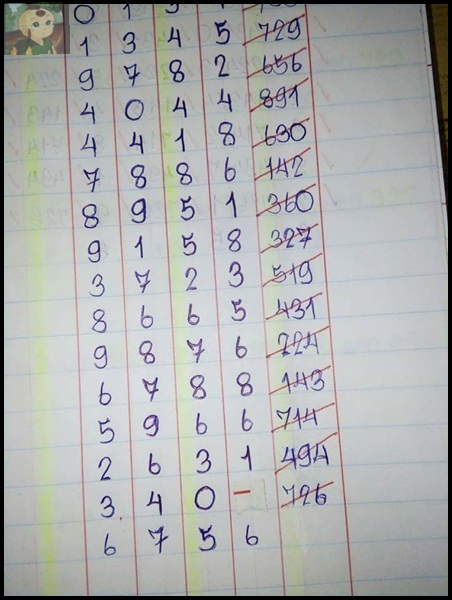 0 1 9
1 3 4 5 729
9 7 8 2 656
4 0 4 4 891
4 4 1 8 630
7 8 8 6 142
8 9 5 1 360
9 1 5 8 327
3 7 2 3 519
8 6 6 5 431
9 8 7 6 224
6 7 8 8 143
5 9 6 6 714
2 6 3 1 494
3 4 0 - 726
6 7 5 6